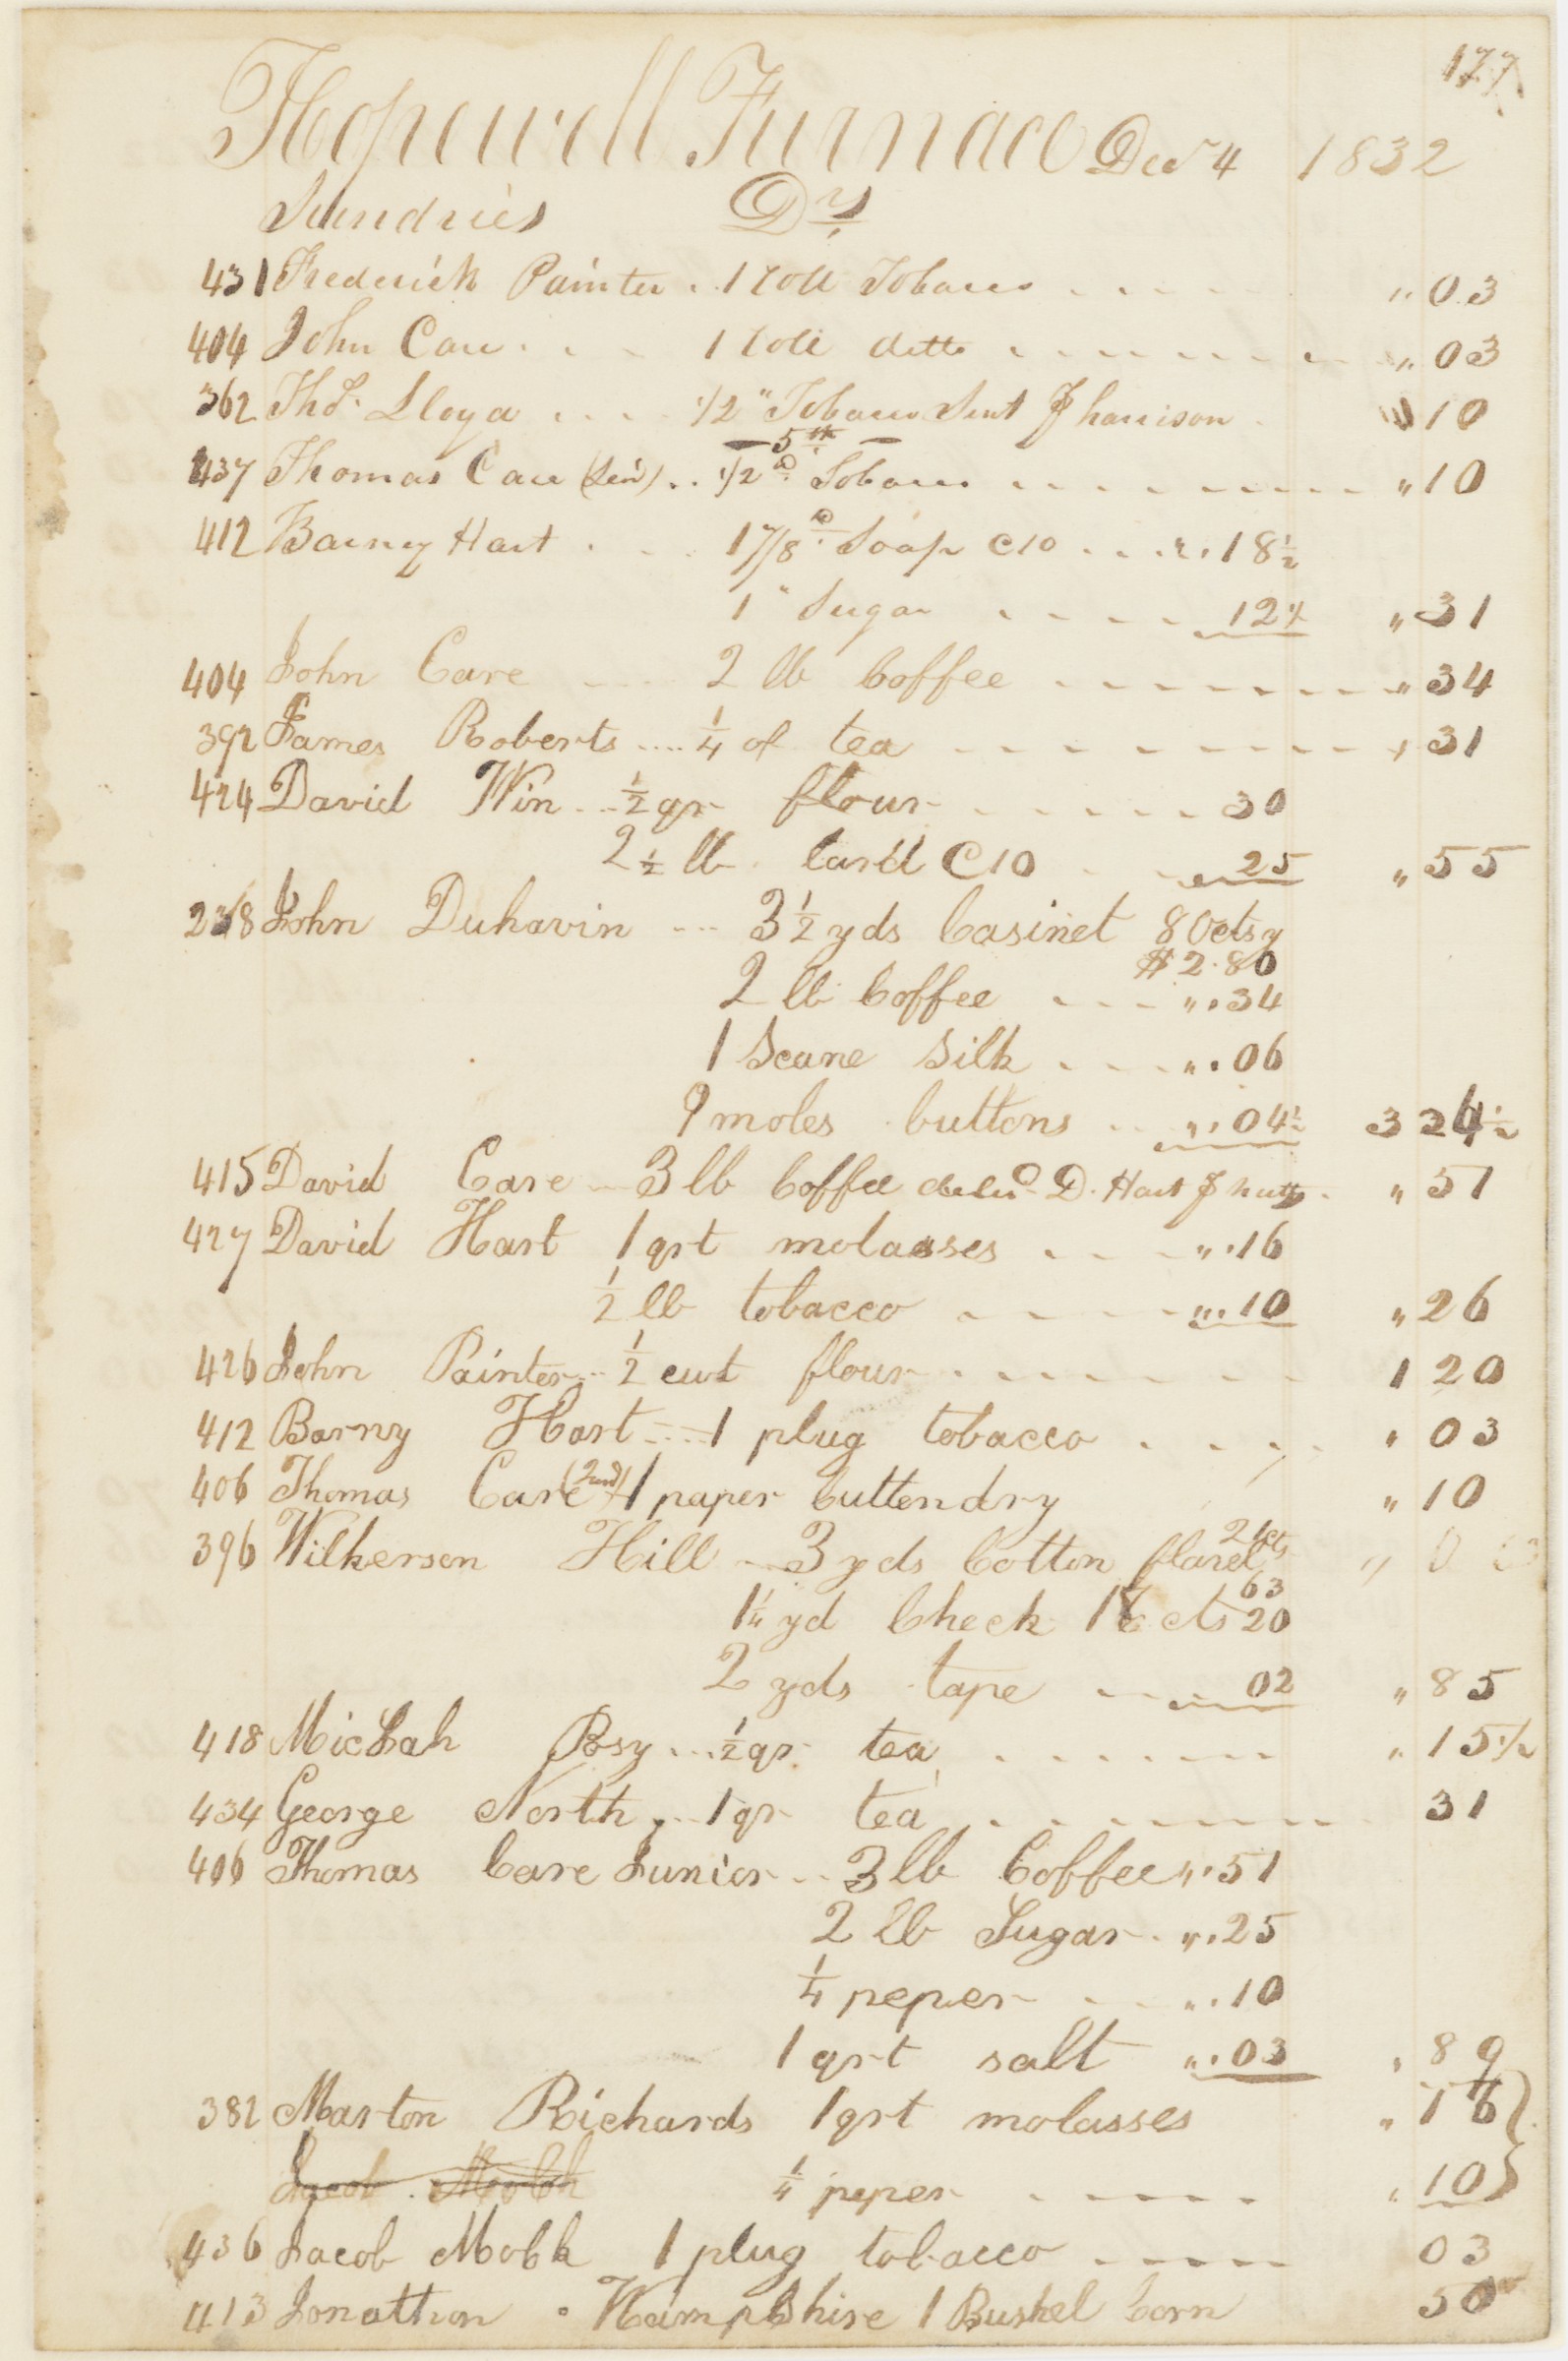 177
Hopewell Furnace Decr 4 1832
Sundries Drs
431 Frederick Painter . . 1 roll Tobacco . . . . " 03
404 John Care . . . 1 roll ditto . . . . . . . . " 03
362 Thos. Lloyd . . . . 1/2 " Tobacco Sent J harrison " 10
— 5th —
437 Thomas Care (Sen) . . 1/2 lb Tobacco . . . . . . . . " 10
412 Barney Hart . . . 1 7/8 lb Soap C10 . . . " . 18 1/2
1 " Sugar . . . . . 12 1/2 " 31
404 John Care . . . 2 lb Coffee . . . . . . . . " 34
392 James Roberts .... 1/4 of tea . . . . . . . . " 31
424 David Win . . . 1/2 qr flour . . . . . . 30
2 1/2 lb lard C10 . . 25 " 55
238 John Duhavin ... 3 1/2 yds Casinet 80cts y
$ 2.80
2 lb Coffee . . . " . 34
1 Scane Silk . . . . " . 06
9 moles buttons . . " . 04 1/2 3 24 1/2
415 David Care — 3 lb Coffee deld D. Hart J hatts . " 51
427 David Hart 1 qrt molasses . . . . " . 16
1/2 lb tobacco . . . . . " . 10 " 26
426 John Painter ... 1/2 cwt flour . . . . . . . 1 20
412 Barny Hart .... 1 plug tobacco . . . . . " 03
406 Thomas Care (2nd) 1 paper buttendry " 10
396 Wilkerson Hill — 3 yds Cotton flanel 21cts
63
1 1/4 yd Check 16 cts 20
2 yds tape . . . 02 " 85
418 MicJah Posy ... 1/2 qr. tea . . . . . . . " 15 1/2
434 George North . . . 1 qr tea . . . . . . . . . 31
406 Thomas Care Junior . . 3 lb Coffee " . 51
2 lb Sugar . " . 25
1/4 peper . . . " . 10
1 qrt salt " . 03 " 89
382 Marton Richards 1 qrt molasses " 16
Jacob Mobk 1/4 peper . . . . . " 10
436 Jacob Mobk 1 plug tobacco . . . . . 03
413 Jonathon . Hampshire 1 Bushel Corn 50